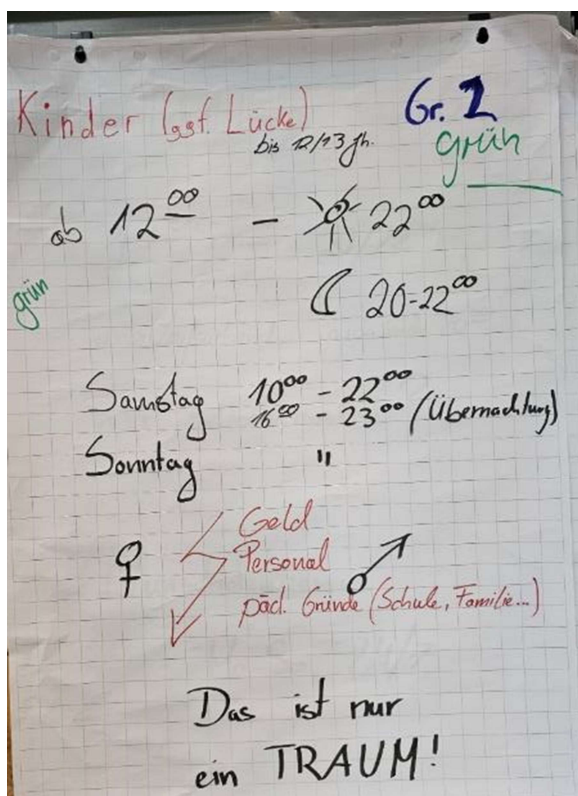 Kinder (ggf. Lücke) Gr. 1
bis 12/13 Jh. grün
ab 12 00 - 22 00
grün
20-22 00
Samstag 10 00 - 22 00
16 00 - 23 00 (Übernachtung)
Sonntag "
Geld
Personal
päd. Gründe (Schule, Familie...)
Das ist nur
ein TRAUM!